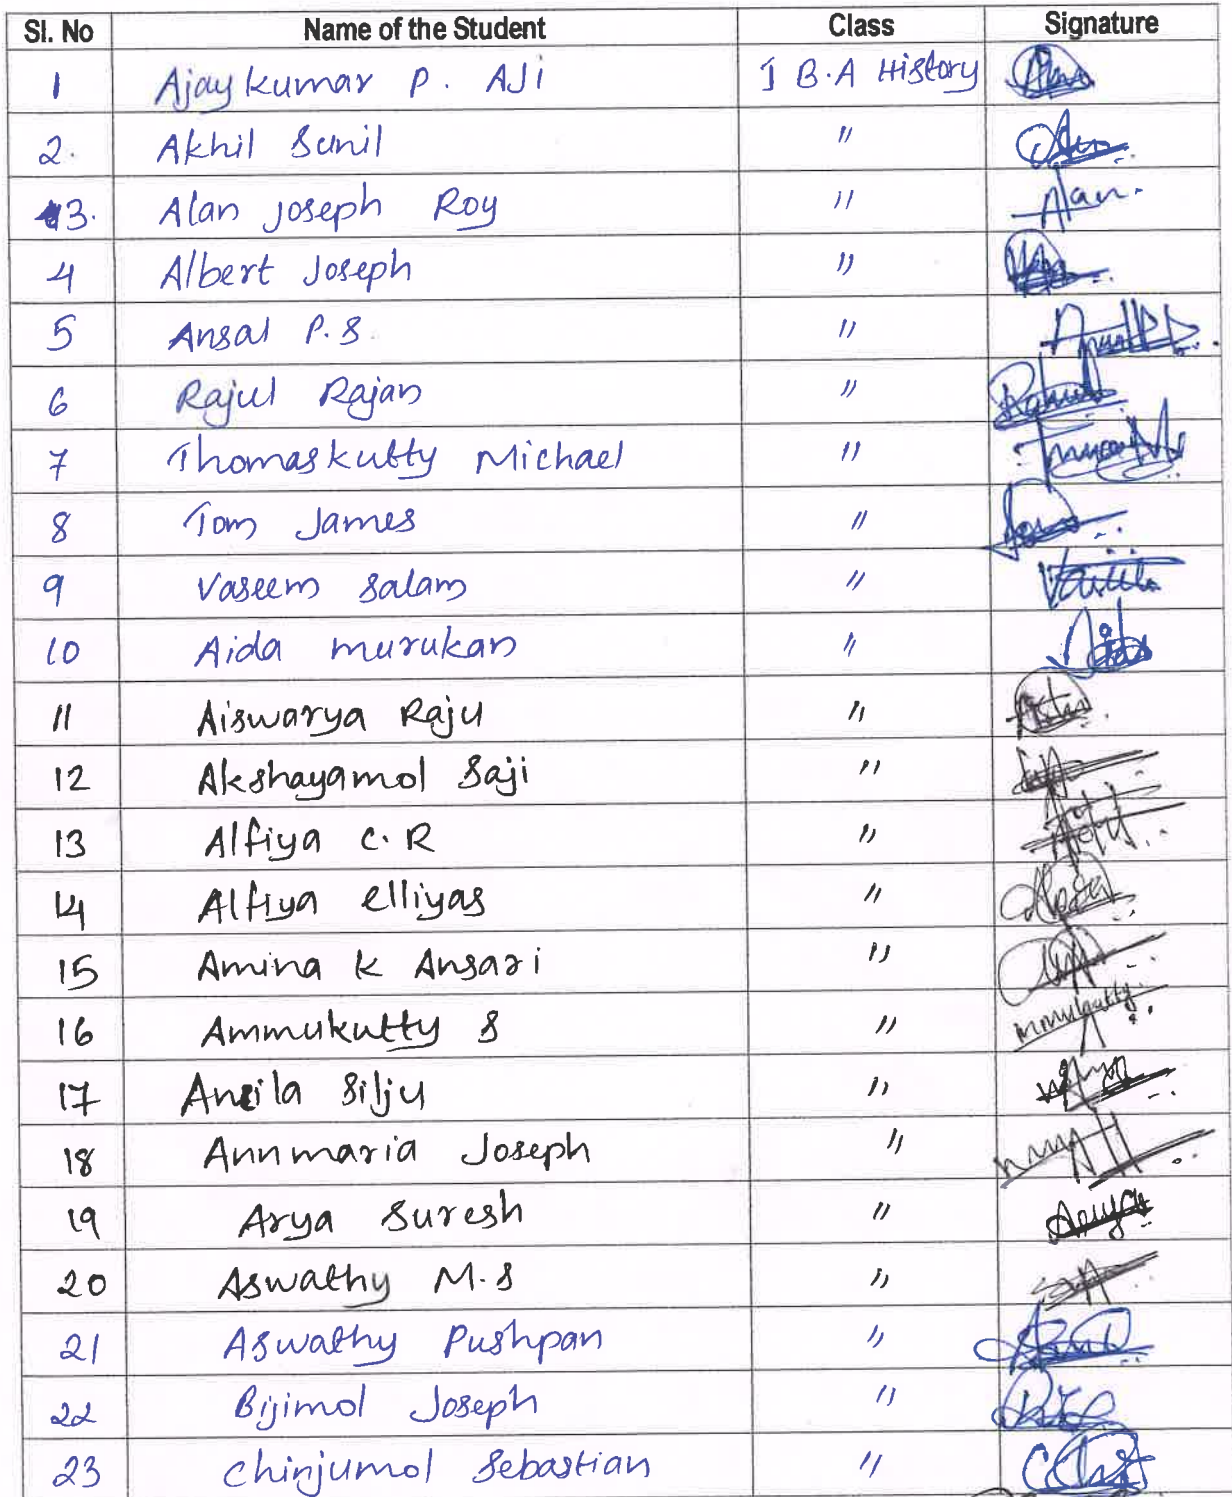 Sl. No Name of the Student Class Signature
1 Ajaykumar P. AJi I B.A History
2. Akhil Sunil "
3. Alan Joseph Roy " Alan.
4 Albert Joseph "
5 Ansal P.S. "
6 Rajul Rajan " Rahul
7 Thomaskutty Michael "
8 Tom James "
9 Vaseem Salam "
10 Aida murukan "
11 Aiswarya Raju "
12 Akshayamol Saji "
13 Alfiya C.R "
14 Alfiya elliyas "
15 Amina K Ansari "
16 Ammukutty S "
17 Anzila Silju "
18 Annmaria Joseph "
19 Arya Suresh " Arya
20 Aswathy M.S "
21 Aswathy Pushpan "
22 Bijimol Joseph "
23 Chinjumol Sebastian "